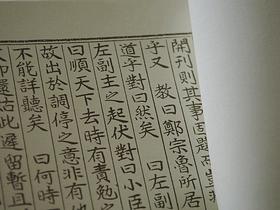 開刊則其事固
于又 教曰鄭宗魯所居
道乎對曰然矣 曰左副
左副主之起伏對曰小臣
曰順天下去時有責勉之
故出於調停之意非有他
不能詳聽矣 曰何時
此遲留暫且